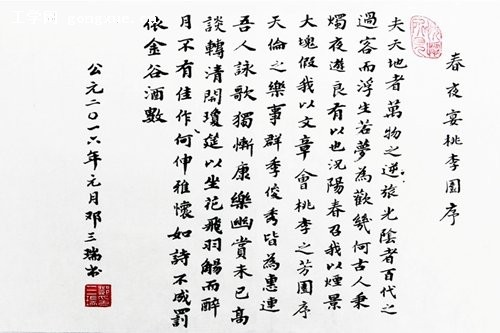 春夜宴桃李園序
夫天地者萬物之逆旅光陰者百代之
過客而浮生若夢為歡幾何古人秉
燭夜遊良有以也況陽春召我以煙景
大塊假我以文章會桃李之芳園序
天倫之樂事群季俊秀皆為惠連
吾人詠歌獨慚康樂幽賞未已高
談轉清開瓊筵以坐花飛羽觴而醉
月不有佳作何伸雅懷如詩不成罰
依金谷酒數
公元二〇一六年元月邓三瑞书